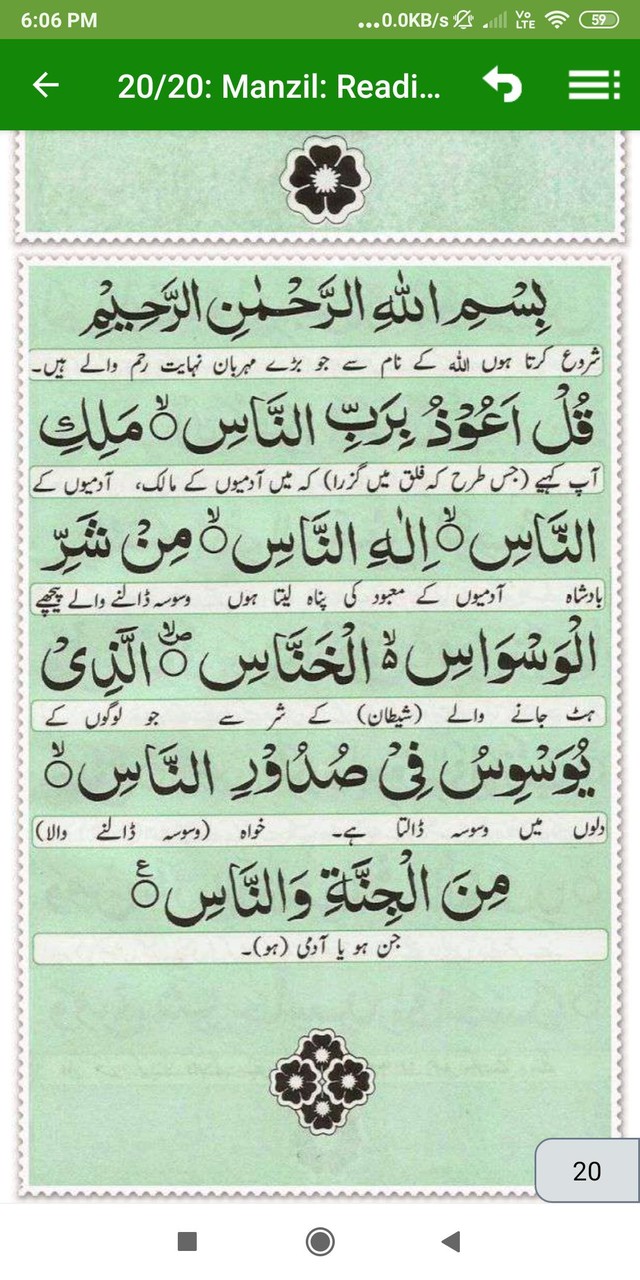 6:06 PM ...0.0KB/s Vo LTE 59
20/20: Manzil: Readi...
بِسْمِ اللهِ الرَّحْمٰنِ الرَّحِيْمِ
شروع کرتا ہوں اللہ کے نام سے جو بڑے مہربان نہایت رحم والے ہیں۔
قُلْ اَعُوْذُ بِرَبِّ النَّاسِ ۙ مَلِكِ
آپ کہیے (جس طرح کہ فلق میں گزرا) کہ میں آدمیوں کے مالک، آدمیوں کے
النَّاسِ ۙ اِلٰهِ النَّاسِ ۙ مِنْ شَرِّ
بادشاہ آدمیوں کے معبود کی پناہ لیتا ہوں وسوسہ ڈالنے والے پیچھے
الْوَسْوَاسِ ۙ الْخَنَّاسِ ۪ۙ الَّذِیْ
ہٹ جانے والے (شیطان) کے شر سے جو لوگوں کے
يُوَسْوِسُ فِیْ صُدُوْرِ النَّاسِ ۙ
دلوں میں وسوسہ ڈالتا ہے۔ خواہ (وسوسہ ڈالنے والا)
مِنَ الْجِنَّةِ وَالنَّاسِ ۠
جن ہو یا آدمی (ہو)۔
20